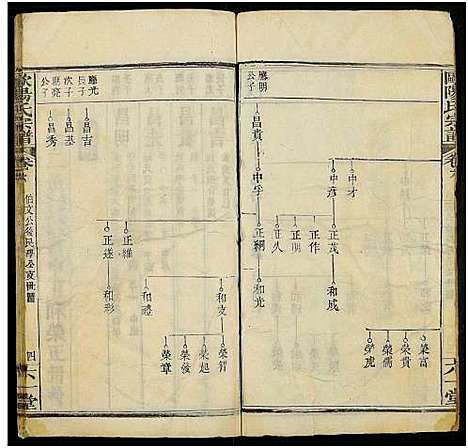 歐陽氏宗譜
卷六
六一堂
應明
公子
昌貴
中孚
中彥
中才
正綱
正久
正明
正作
正茂
和光
和成
榮虎
榮儒
榮貴
榮富
應光
長子
次子
應亮
公子
昌吉
昌基
昌秀
正遂
正維
和彩
和禮
和友
榮章
榮發
榮起
榮智
歐陽氏宗譜
伯文公後民學公支世圖
四
六一堂